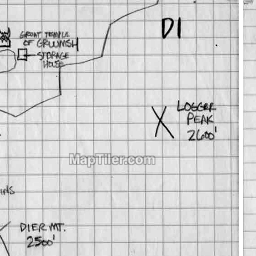 D1
GREAT TEMPLE
OF GRUUMSH
STORAGE
HOUSE
LOGGER
PEAK
2600'
MapTiler.com
DIER MT.
2500'